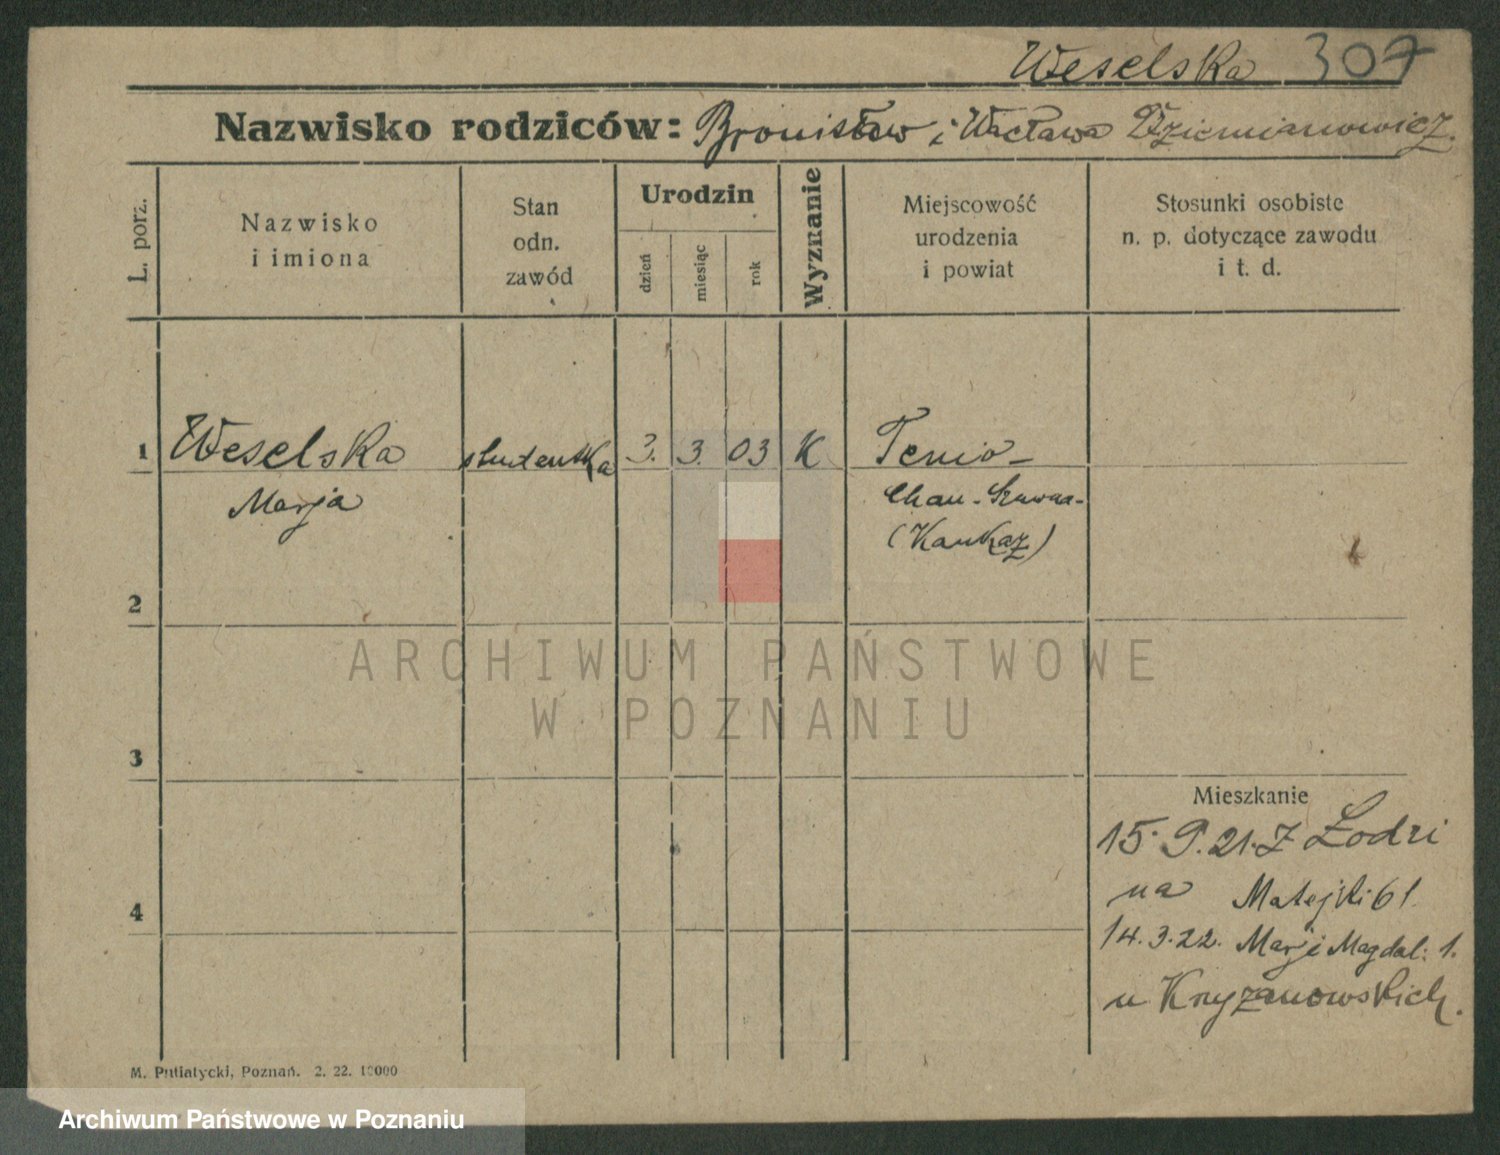 Weselska 307
Nazwisko rodziców: Bronisław i Wacława Dziemianowicz.
L. porz.
Nazwisko
i imiona
Stan
odn.
zawód
Urodzin
dzień
miesiąc
rok
Wyznanie
Miejscowość
urodzenia
i powiat
Stosunki osobiste
n. p. dotyczące zawodu
i t. d.
1 Weselska studentka 3. 3. 03 K Temio-
Marja Chan-Szuwna-
(Kaukaz)
2
3
4
ARCHIWUM PAŃSTWOWE
W POZNANIU
Mieszkanie
15.9.21. Z Łodzi
na Matejki 61.
14.3.22. Marji Magdal: 1.
u Kryzanowskich.
M. Putiatycki, Poznań. 2. 22. 10000
Archiwum Państwowe w Poznaniu